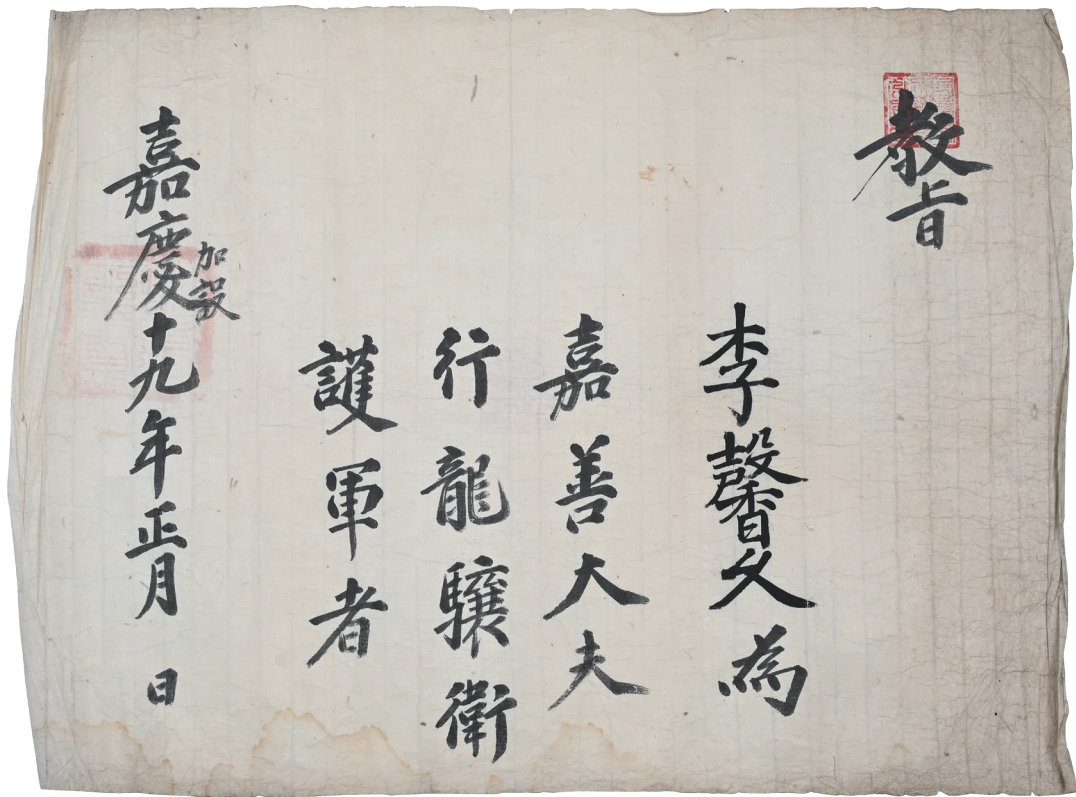 教旨
李馨久為
嘉善大夫
行龍驤衛
護軍者
嘉慶十九年正月 日
加設